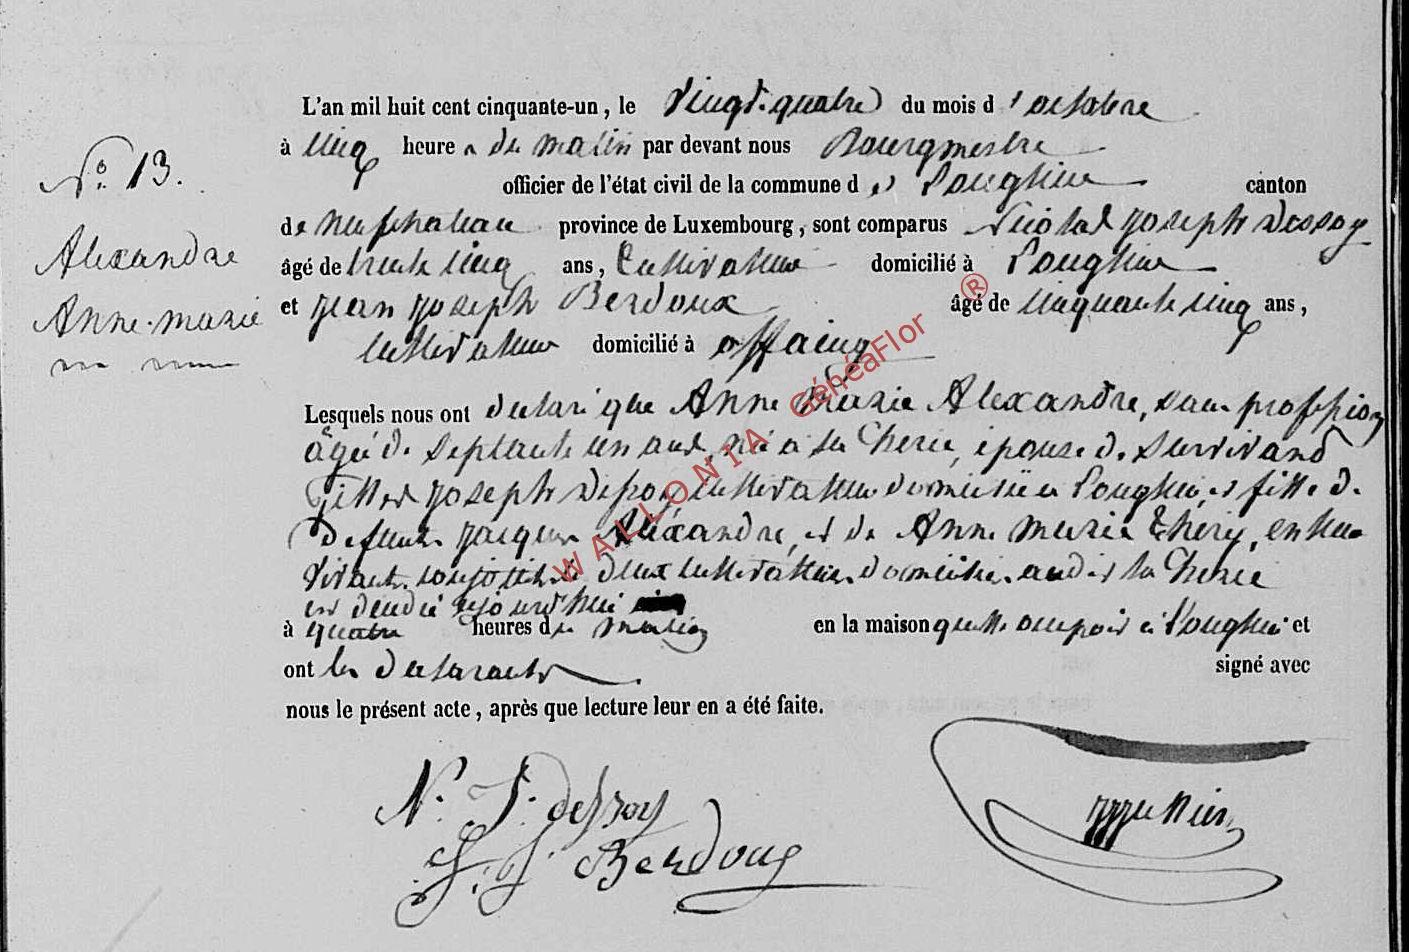 L'an mil huit cent cinquante-un, le Vingt-quatre du mois d'octobre
à cinq heures du matin par devant nous Bourgmestre
officier de l'état civil de la commune de Longlier canton
de neufchateau province de Luxembourg, sont comparus Nicolas Joseph Dessoy
âgé de trente cinq ans, Cultivateur domicilié à Longlier
et Jean Joseph Berdoux âgé de cinquante cinq ans,
cultivateur domicilié à offaing
N.° 13.
Alexandre
Anne-marie
Lesquels nous ont declaré que Anne Marie Alexandre, sans profession
âgée de septante un ans, née à la Cherie, épouse de survivant
Joseph Dessoy cultivateur domicilié à Longlier, et fille de
Defunts Jacques Alexandre, et de Anne Marie Théry, en leur
vivant conjoints deux cultivateurs domiciliés audit la Cherie
est décédée aujourd'hui
à quatre heures du matin en la maison quelle occupoit à Longlier et
ont les declarants signé avec
nous le présent acte, après que lecture leur en a été faite.
N. J. dessoy
J. J. Berdoux
WALLONIA GénéaFlor ®